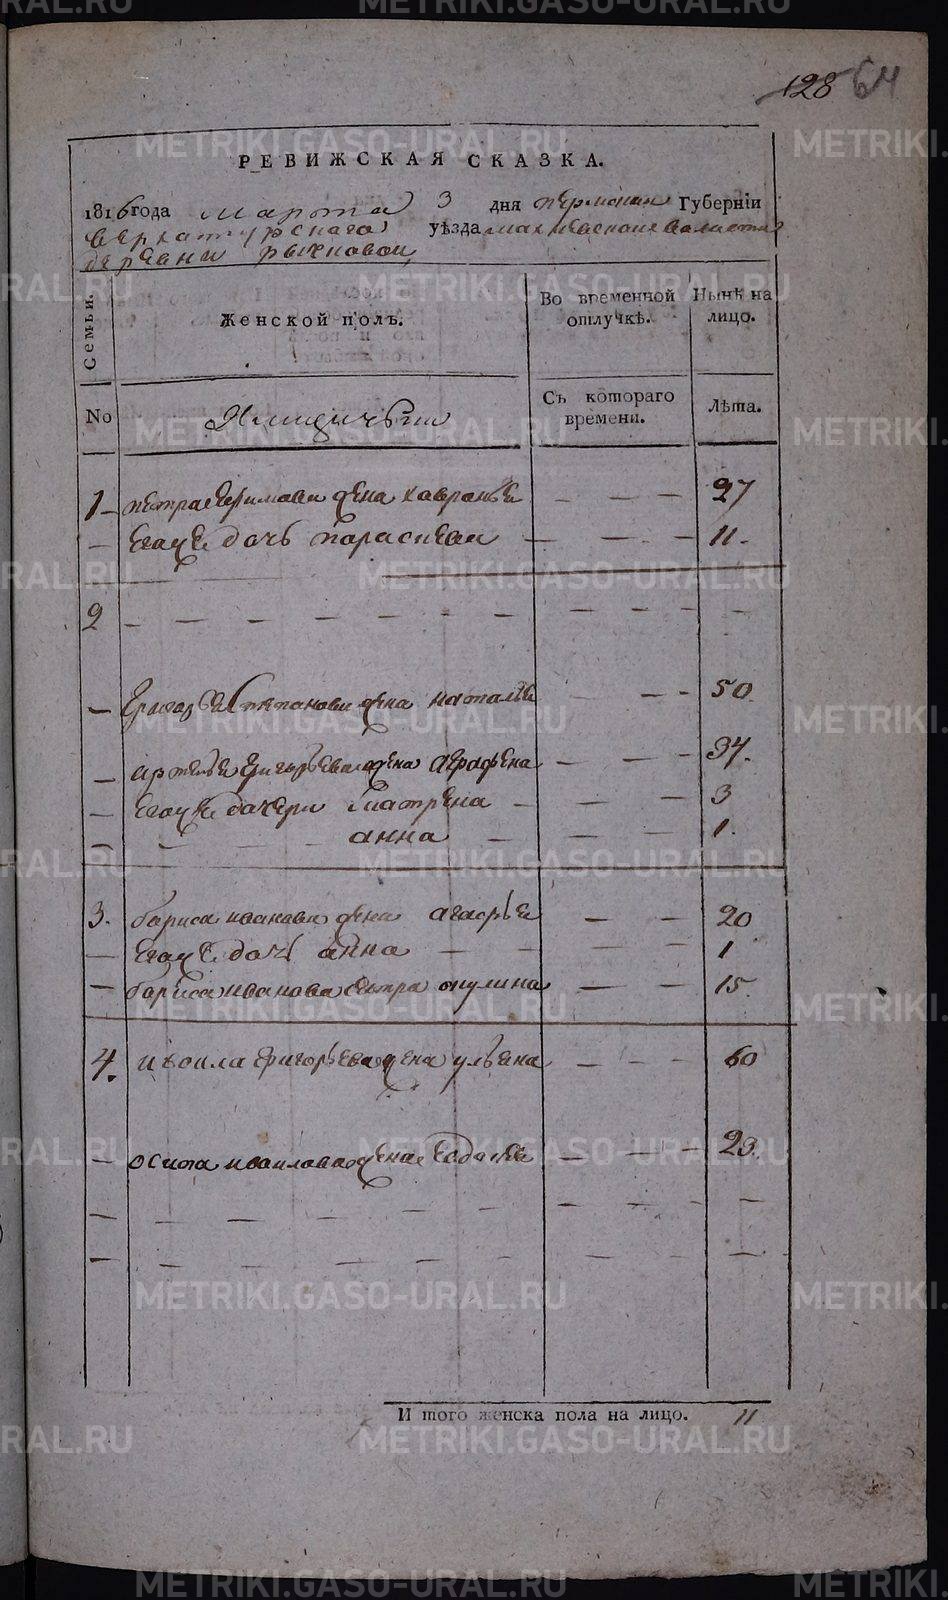 128 64
РЕВИЖСКАЯ СКАЗКА.
1816 года марта 3 дня пермской Губерніи
верхотурскаго уѣзда махневской волости
деревни
Семьи. Женской полъ. Во временной отлучкѣ. Нынѣ на лицо.
No Съ котораго времени. Лѣта.
1 - петра ефимова жена хавронья - - - 27
- его же дочь парасковья - - - - 11.
2 - - - - - - - - - - -
- григорья степанова жена наталья - - - 50
- артемья григорьева жена аграфена - - - 34.
- его же дочери матрена - - - 3
- - - анна - - - 1.
3. бориса иванова жена агафья - - 20
- его же дочь анна - - - - 1
- бориса иванова сестра окулина - - 15
4. изоила григорьева жена ульяна - - - 60
- осипа изоилова жена - - - 23.
- - - - - - - - - -
- - - - - - - - - -
И того женска пола на лицо. 11
METRIKI.GASO-URAL.RU